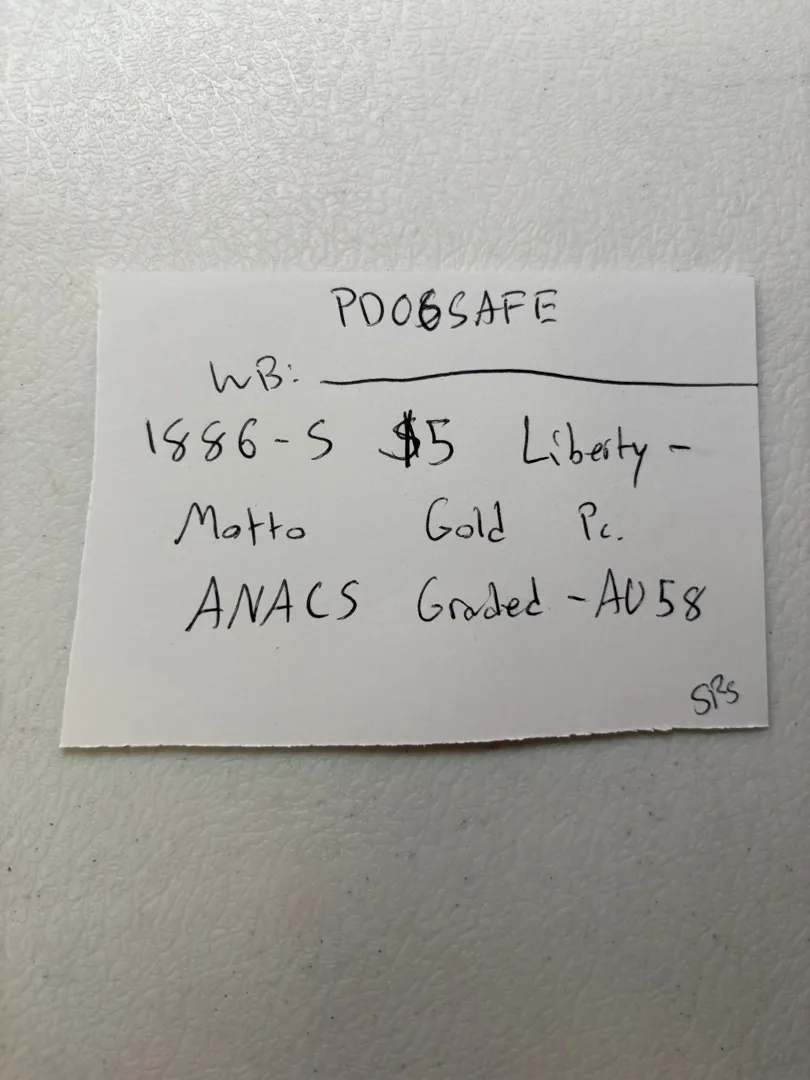 PDO6SAFE
WB:
1886-S $5 Liberty -
Motto Gold Pc.
ANACS Graded - AU58
SRS